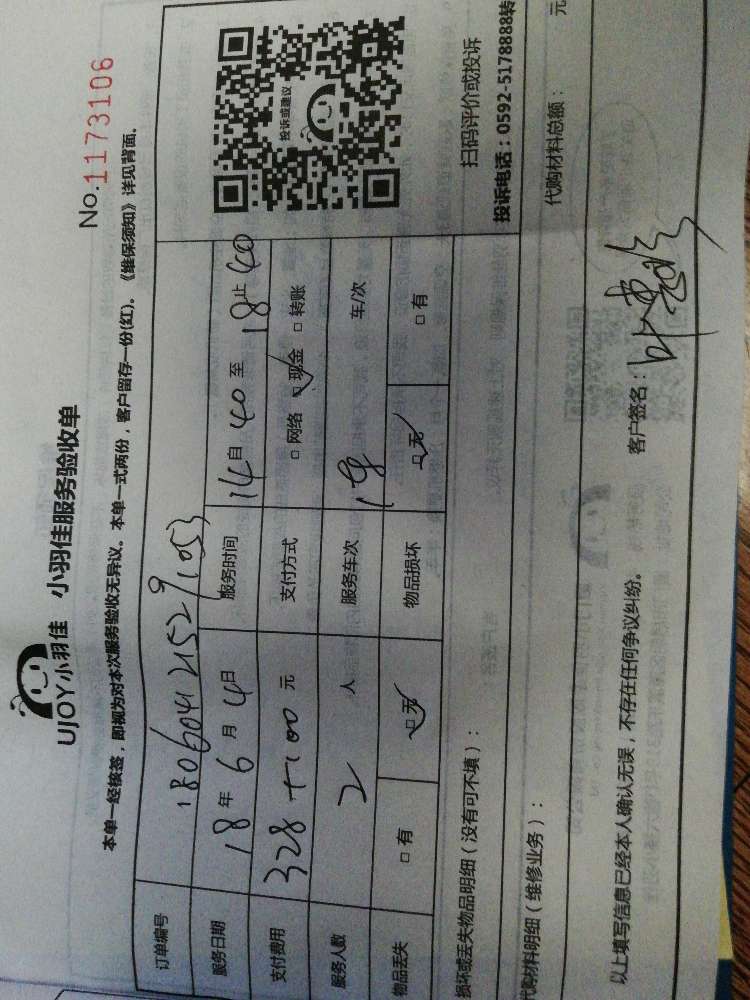 UJOY小羽佳 小羽佳服务验收单
No.1173106
本单一经核签，即视为对本次服务验收无异议。本单一式两份，客户留存一份(红)。《维保须知》详见背面。
订单编号 180604215291053
服务日期 18年6月4日 服务时间 14自40至18止40
支付费用 328+100元 支付方式 □网络 ☑现金 □转账
服务人数 2人 服务车次 车/次
物品丢失 □有 ☑无 物品损坏 ☑无 □有
投诉或建议
扫码评价或投诉
投诉电话：0592-5178888转
损坏或丢失物品明细（没有可不填）：
代购材料明细（维修业务）： 代购材料总额： 元
以上填写信息已经本人确认无误，不存在任何争议纠纷。 客户签名：